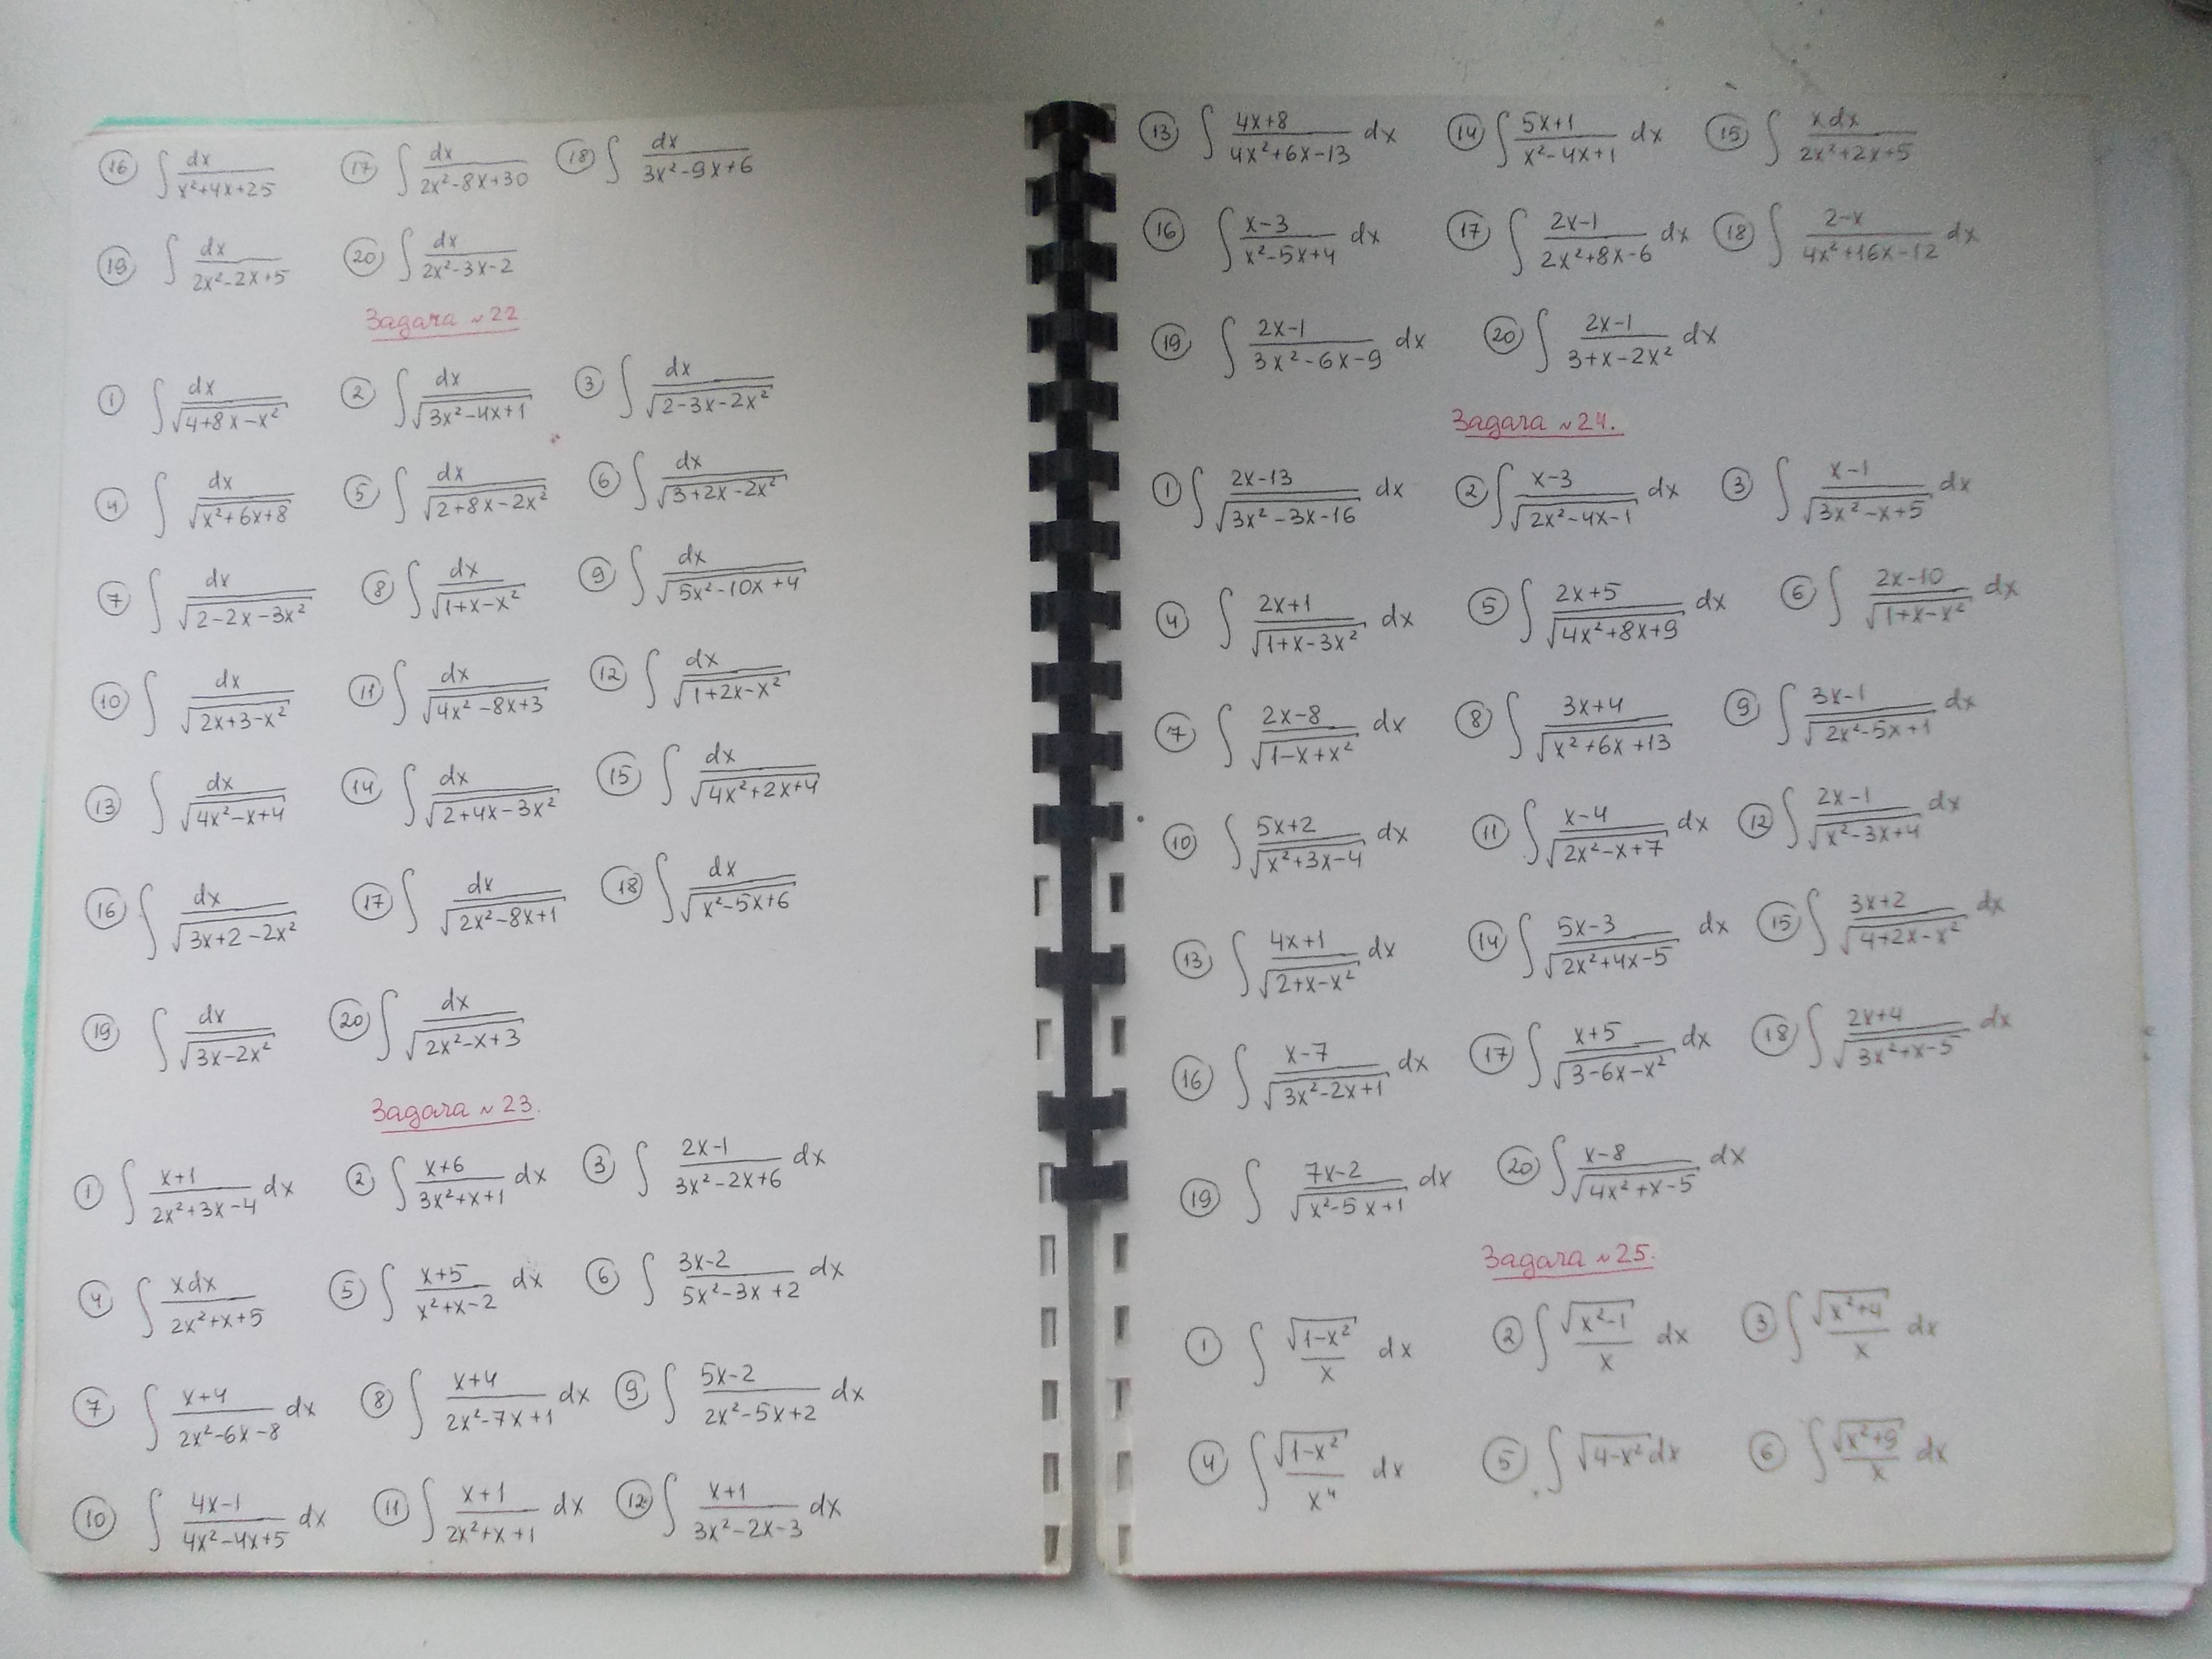 16 ∫ dx/(x²+4x+25) 17 ∫ dx/(2x²-8x+30) 18 ∫ dx/(3x²-9x+6)
19 ∫ dx/(2x²-2x+5) 20 ∫ dx/(2x²-3x-2)
Задача №22
1 ∫ dx/√(4+8x-x²) 2 ∫ dx/√(3x²-4x+1) 3 ∫ dx/√(2-3x-2x²)
4 ∫ dx/√(x²+6x+8) 5 ∫ dx/√(2+8x-2x²) 6 ∫ dx/√(3+2x-2x²)
7 ∫ dx/√(2-2x-3x²) 8 ∫ dx/√(1+x-x²) 9 ∫ dx/√(5x²-10x+4)
10 ∫ dx/√(2x+3-x²) 11 ∫ dx/√(4x²-8x+3) 12 ∫ dx/√(1+2x-x²)
13 ∫ dx/√(4x²-x+4) 14 ∫ dx/√(2+4x-3x²) 15 ∫ dx/√(4x²+2x+4)
16 ∫ dx/√(3x+2-2x²) 17 ∫ dx/√(2x²-8x+1) 18 ∫ dx/√(x²-5x+6)
19 ∫ dx/√(3x-2x²) 20 ∫ dx/√(2x²-x+3)
Задача №23.
1 ∫ (x+1)/(2x²+3x-4) dx 2 ∫ (x+6)/(3x²+x+1) dx 3 ∫ (2x-1)/(3x²-2x+6) dx
4 ∫ xdx/(2x²+x+5) 5 ∫ (x+5)/(x²+x-2) dx 6 ∫ (3x-2)/(5x²-3x+2) dx
7 ∫ (x+4)/(2x²-6x-8) dx 8 ∫ (x+4)/(2x²-7x+1) dx 9 ∫ (5x-2)/(2x²-5x+2) dx
10 ∫ (4x-1)/(4x²-4x+5) dx 11 ∫ (x+1)/(2x²+x+1) dx 12 ∫ (x+1)/(3x²-2x-3) dx
13 ∫ (4x+8)/(4x²+6x-13) dx 14 ∫ (5x+1)/(x²-4x+1) dx 15 ∫ xdx/(2x²+2x+5)
16 ∫ (x-3)/(x²-5x+4) dx 17 ∫ (2x-1)/(2x²+8x-6) dx 18 ∫ (2-x)/(4x²+16x-12) dx
19 ∫ (2x-1)/(3x²-6x-9) dx 20 ∫ (2x-1)/(3+x-2x²) dx
Задача №24.
1 ∫ (2x-13)/√(3x²-3x-16) dx 2 ∫ (x-3)/√(2x²-4x-1) dx 3 ∫ (x-1)/√(3x²-x+5) dx
4 ∫ (2x+1)/√(1+x-3x²) dx 5 ∫ (2x+5)/√(4x²+8x+9) dx 6 ∫ (2x-10)/√(1+x-x²) dx
7 ∫ (2x-8)/√(1-x+x²) dx 8 ∫ (3x+4)/√(x²+6x+13) 9 ∫ (3x-1)/√(2x²-5x+1) dx
10 ∫ (5x+2)/√(x²+3x-4) dx 11 ∫ (x-4)/√(2x²-x+7) dx 12 ∫ (2x-1)/√(x²-3x+4) dx
13 ∫ (4x+1)/√(2+x-x²) dx 14 ∫ (5x-3)/√(2x²+4x-5) dx 15 ∫ (3x+2)/√(4+2x-x²) dx
16 ∫ (x-7)/√(3x²-2x+1) dx 17 ∫ (x+5)/√(3-6x-x²) dx 18 ∫ (2x+4)/√(3x²+x-5) dx
19 ∫ (7x-2)/√(x²-5x+1) dx 20 ∫ (x-8)/√(4x²+x-5) dx
Задача №25.
1 ∫ √(1-x²)/x dx 2 ∫ √(x²-1)/x dx 3 ∫ √(x²+4)/x dx
4 ∫ √(1-x²)/x⁴ dx 5 ∫ √(4-x²) dx 6 ∫ √(x²+9)/x dx